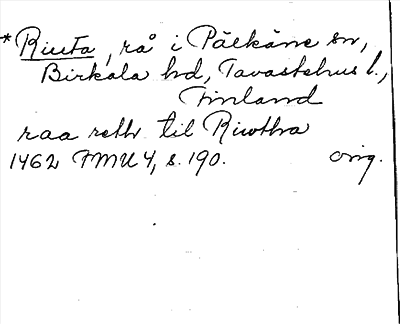 *Riuta, rå i Pälkäne sn,
Birkala hd, Tavastehus l.,
Finland
raa reth til Riwthra
1462 FMU 4, s. 190. orig.